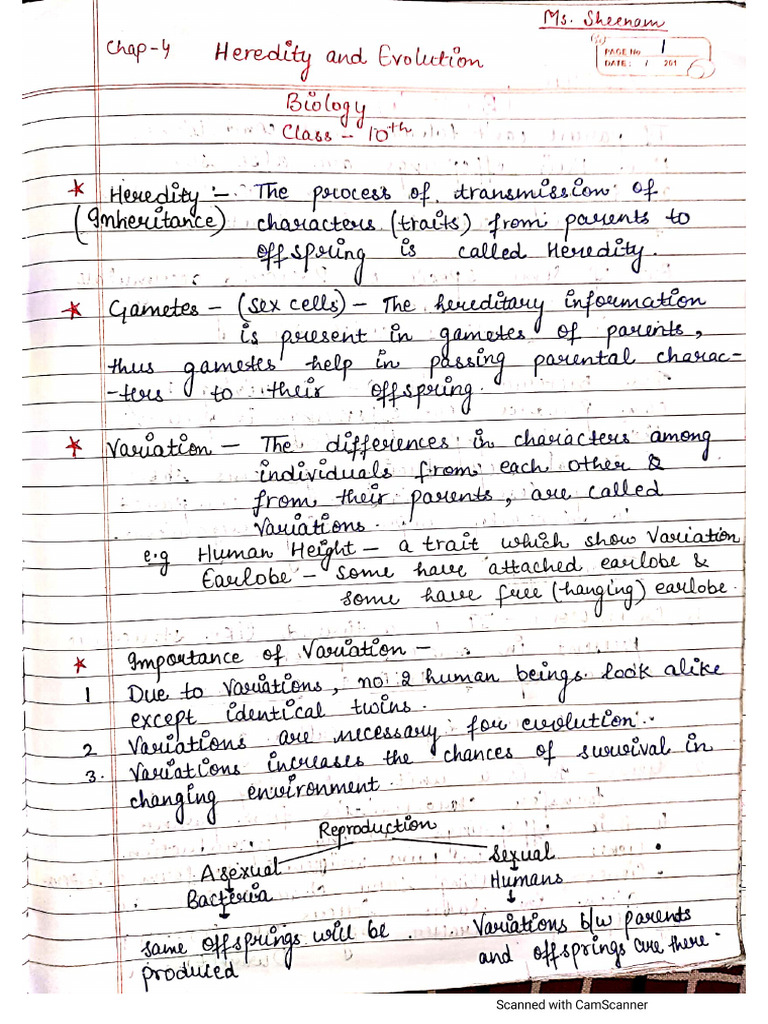 Ms. Sheenam
Chap-4 Heredity and Evolution
PAGE No 1
DATE: / 201
Biology
Class - 10th
* Heredity :- The process of transmission of
(Inheritance) characters (traits) from parents to
offspring is called Heredity.
* Gametes - (sex cells) - The hereditary information
is present in gametes of parents,
thus gametes help in passing parental charac-
-ters to their offspring.
* Variation - The differences in characters among
individuals from each other &
from their parents, are called
Variations.
e.g Human Height - a trait which show Variation
Earlobe - some have attached earlobe &
some have free (hanging) earlobe.
* Importance of Variation -
1 Due to Variations, no 2 human beings look alike
except identical twins.
2 Variations are necessary for evolution.
3. Variations increases the chances of survival in
changing environment.
Reproduction
Asexual Sexual
Bacteria Humans
same offsprings will be Variations b/w parents
produced and offsprings are there.
Scanned with CamScanner